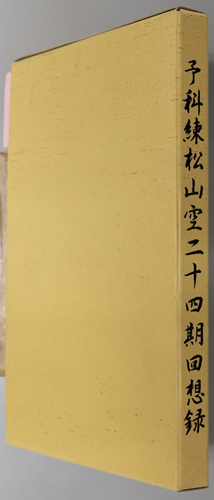 予科練松山空二十四期回想録